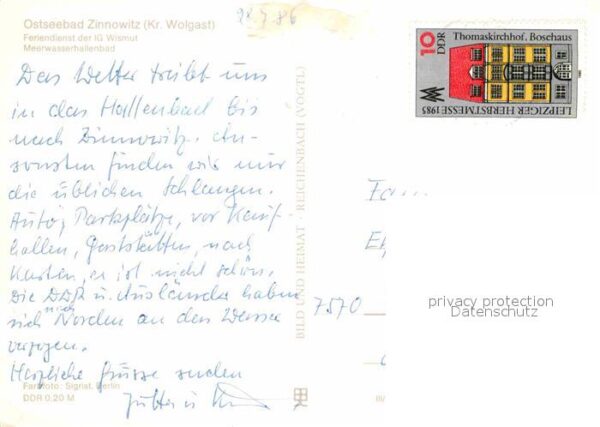 Ostseebad Zinnowitz (Kr. Wolgast)
Feriendienst der IG Wismut
Meerwasserhallenbad
28.7.86
Das Wetter treibt uns
in das Hallenbad bis
nach Zinnowitz. An-
sonsten finden wir nur
die üblichen Schlangen.
Auto, Parkplätze, vor Kauf-
hallen, Gaststätten, nach
Karten, es ist nicht schön.
Die DDR u. Ausländer haben
sich nach Norden an das Wasser
verzogen.
Herzliche Grüsse senden
Jutta u.
Farbfoto: Signat. Berlin
DDR 0,20 M
BILD UND HEIMAT · REICHENBACH (VOGTL)
III/
10
DDR
Thomaskirchhof, Bosehaus
LEIPZIGER HERBSTMESSE 1985
Fa...
7570
privacy protection
Datenschutz